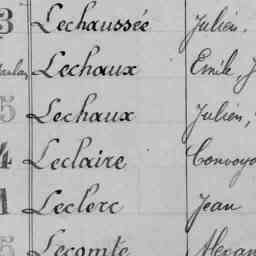 3 Lechaussée Julien,
Lechaux Emile, J
5 Lechaux Julien,
4 Leclaire Convoyo
1 Leclerc Jean
5 Lecomte Alexan